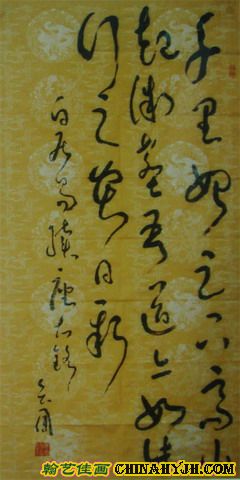 千里始足下高山
起微塵吾道亦如此
行之貴日新
白居易續座右銘
翰艺佳画
CHINAHYJH.COM